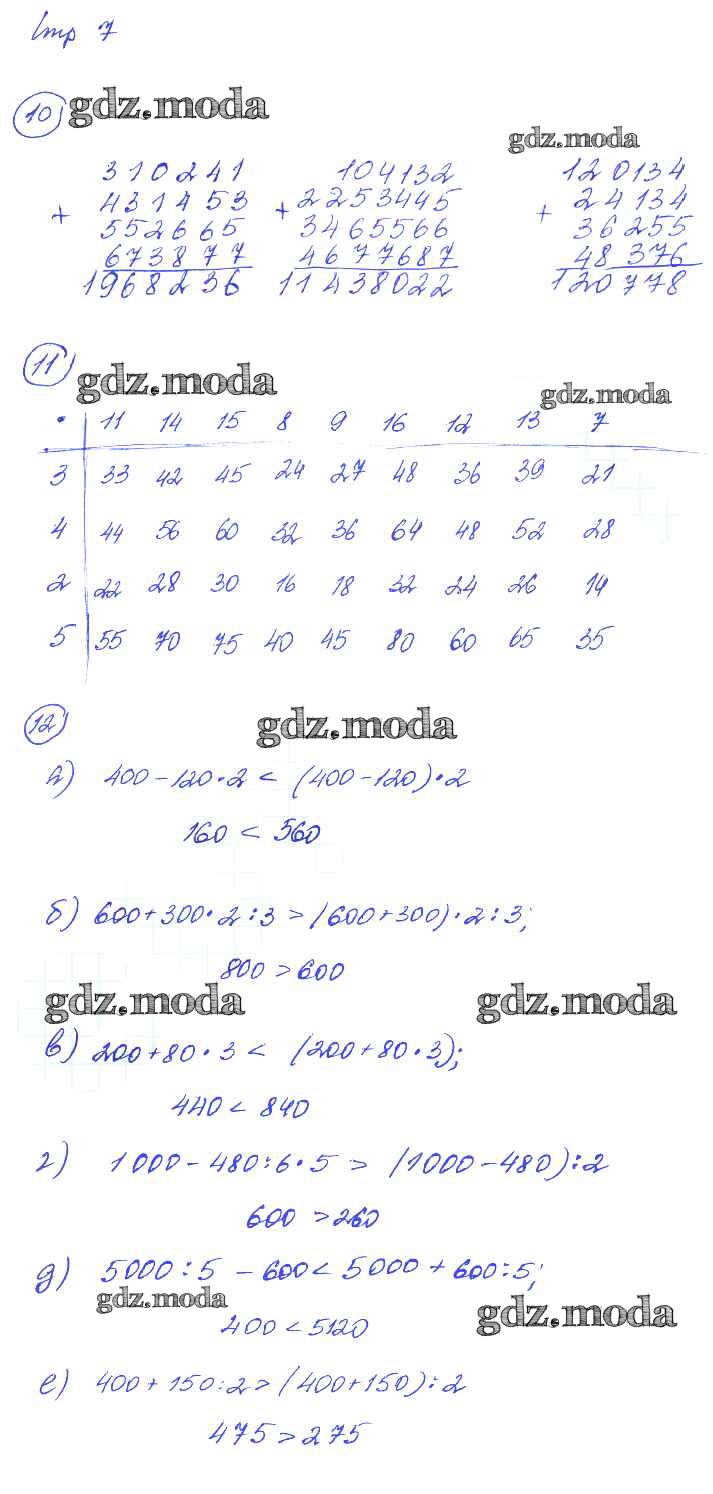 Стр 7
10 gdz.moda
gdz.moda
310241 104132 120134
+ 431453 + 2253445 + 24134
552665 3465566 36255
673877 4677687 48376
1968236 11438022 120778
11 gdz.moda
gdz.moda
• 11 14 15 8 9 16 12 13 7
3 33 42 45 24 27 48 36 39 21
4 44 56 60 32 36 64 48 52 28
2 22 28 30 16 18 32 24 26 14
5 55 70 75 40 45 80 60 65 35
12 gdz.moda
а) 400-120•2 < (400-120)•2
160 < 560
б) 600+300•2:3 > (600+300)•2:3;
800 > 600
gdz.moda gdz.moda
в) 200+80•3 < (200+80•3);
440 < 840
г) 1000-480:6•5 > (1000-480):2
600 > 260
д) 5000:5 - 600 < 5000 + 600:5;
gdz.moda gdz.moda
400 < 5120
е) 400+150:2 > (400+150):2
475 > 275